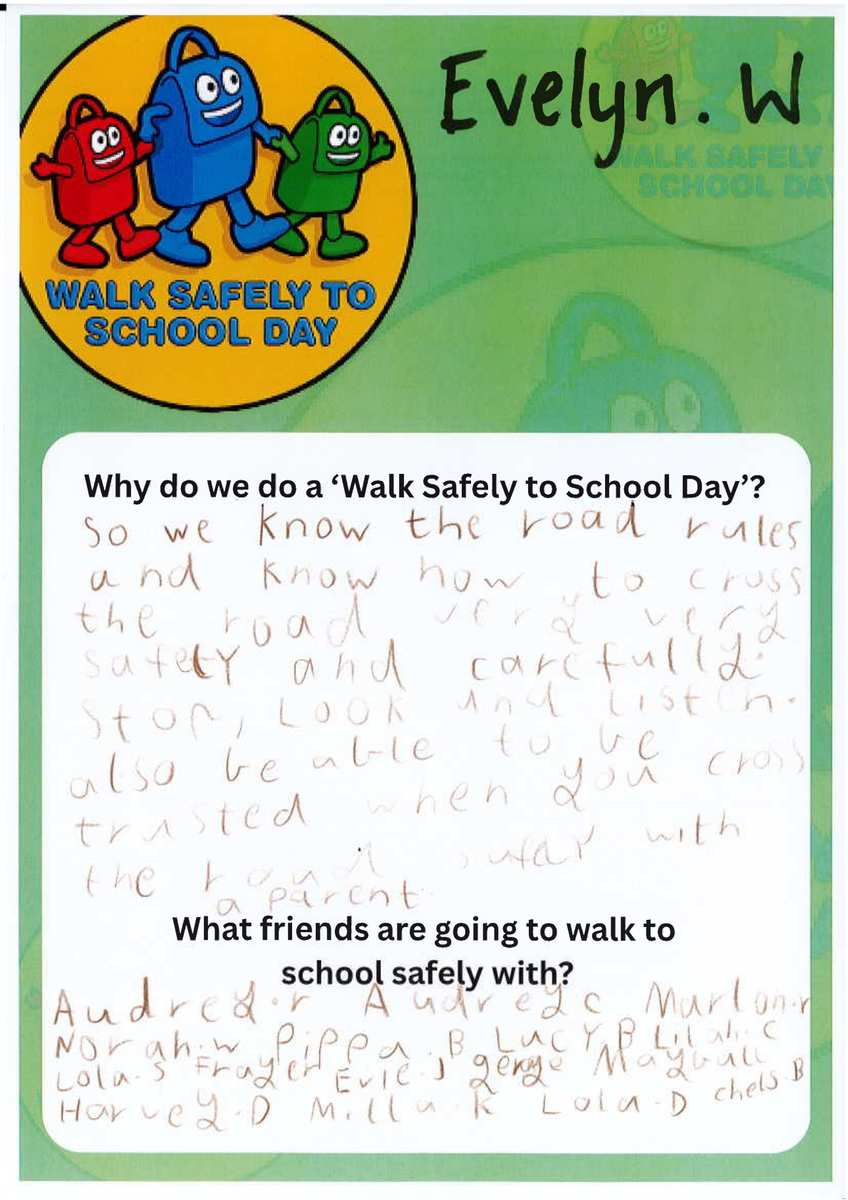 Evelyn. W
WALK SAFELY TO
SCHOOL DAY
WALK SAFELY
SCHOOL DAY
Why do we do a ‘Walk Safely to School Day’?
So we know the road rules
and know how to cross
the road very very
safety and carefully.
Stop, Look and Listen.
also be able to be
trusted when you cross
the road safely with
a parent
What friends are going to walk to
school safely with?
Audrey.r Audrey c Marlon.r
Norah.w Pippa.B Lucy B Lilah.C
Lola.S Evie.J
Harvey.D Milla.K Lola.D chels.B